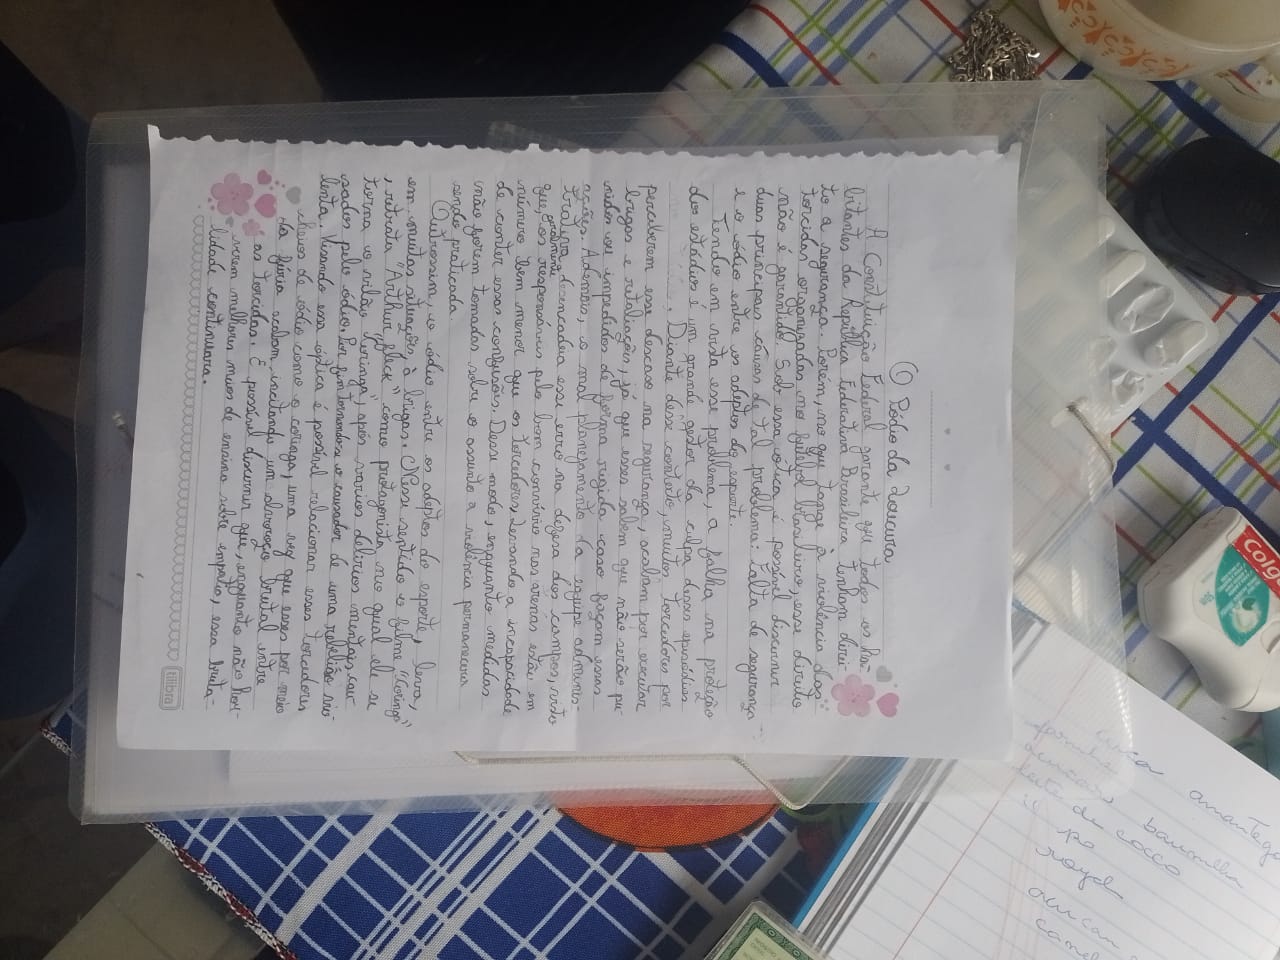 Colgate
amantega
baunilha
coco
leite de
pó
royal
O Pódio da Loucura
A Constituição Federal garante que todos os ha-
bitantes da República Federativa Brasileira tenham direi-
to a segurança. Porém, no que tange à violência das
torcidas organizadas no futebol brasileiro, esse direito
não é garantido. Sob essa ótica é possível discernir
duas principais causas de tal problema: falta de segurança
e o ódio entre os adeptos do esporte.
Tendo em vista esse problema, a falha na proteção
dos estádios é um grande gestor da culpa desses episódios
. Diante desse contexto, muitos torcedores por
perceberem esse descaso na segurança, acabam por executar
brigas e retaliações, já que esses sabem que não serão pu-
nidos ou impedidos de forma rígida caso façam essas
ações. Ademais, o mal planejamento da equipe adminis-
trativa desencadeia esse erro na defesa dos campos, visto
que, geralmente os responsáveis pelo bom convívio nas arenas estão em
número bem menor que os torcedores, levando a incapacidade
de conter essas confusões. Desse modo, enquanto medidas
não forem tomadas sobre o assunto a violência permanecera
sendo praticada.
Outrossim, o ódio entre os adeptos do esporte, leva,
em muitas situações, à brigas. Nesse sentido o filme "Coringa"
, retrata "Arthur fleck" como protagonista no qual ele se
torna o vilão "Coringa", após varios delirios mentais cau-
sados pelo ódio. Por fim tornando-se o causador de uma rebelião vio-
lenta. Visando essa óptica é possível relacionar esses torcedores
cheios de ódio como o coringa, uma vez que esses por meio
da fúria acabam incitando um alvoroço brutal entre
as torcidas. É possível discernir que, enquanto não hou-
verem melhores meios de ensino sobre empatia, essa bruta-
lidade continuara.
tilibra